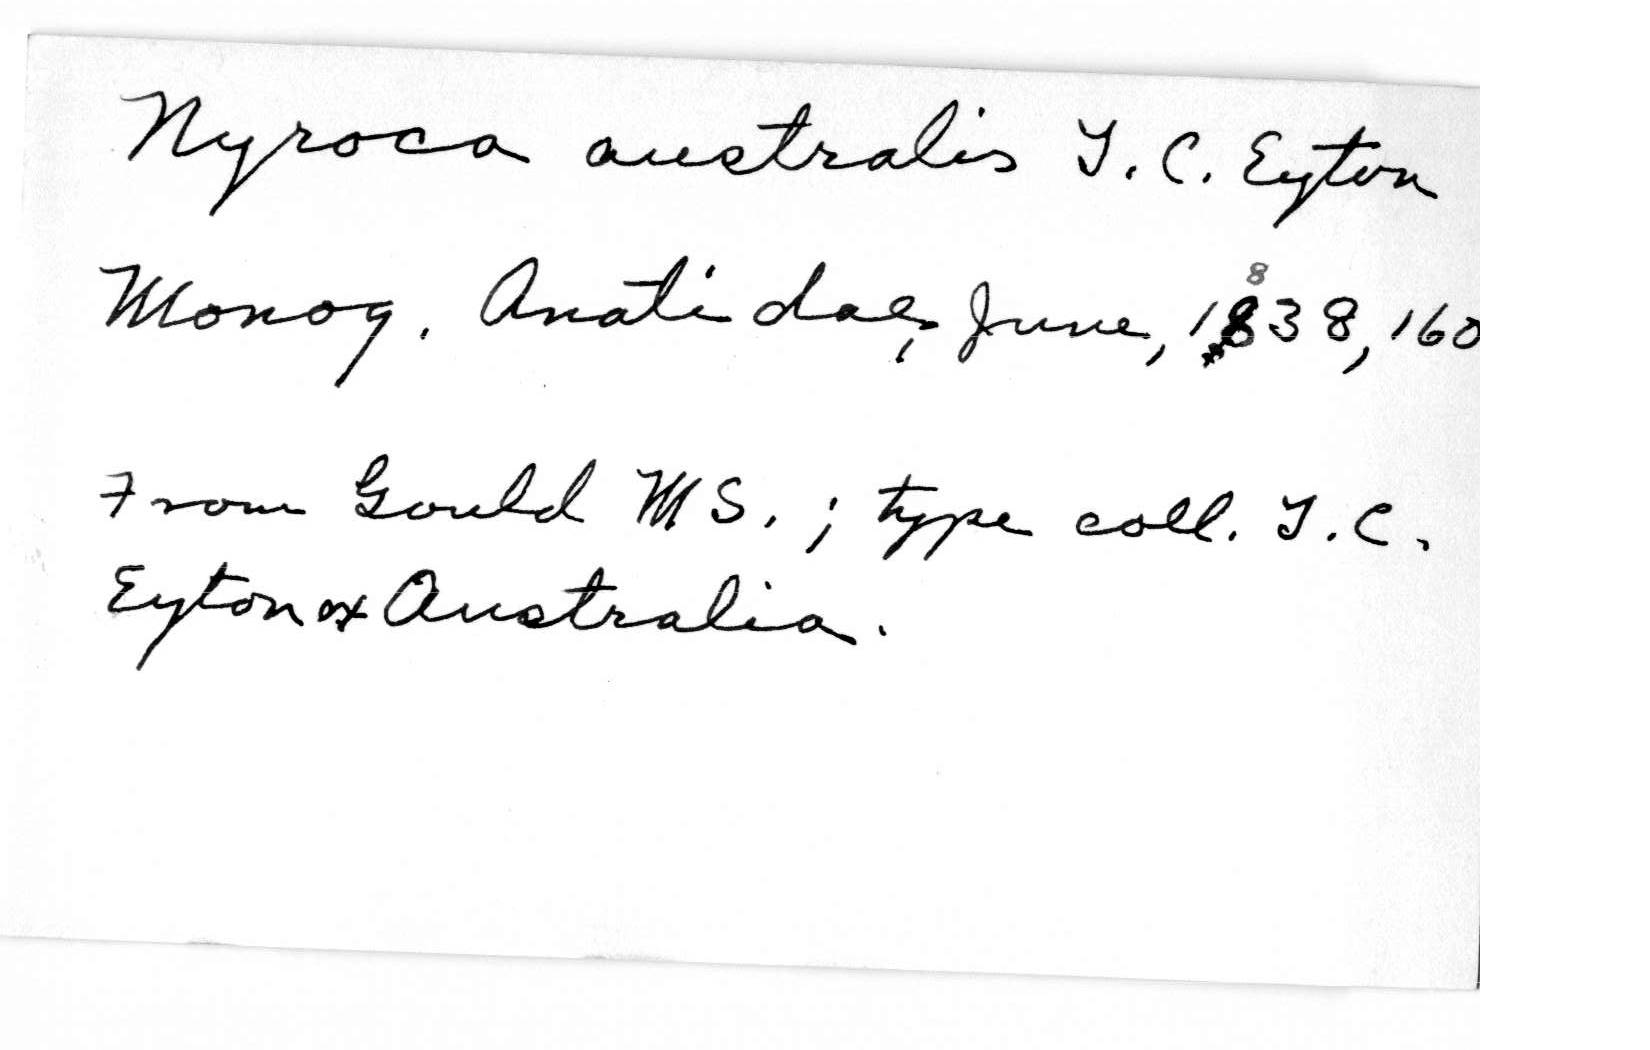 Nyroca australis T. C. Eyton
Monog. Anatidae, June, 1838, 160
From Gould MS.; type coll. T. C.
Eyton ex Australia.